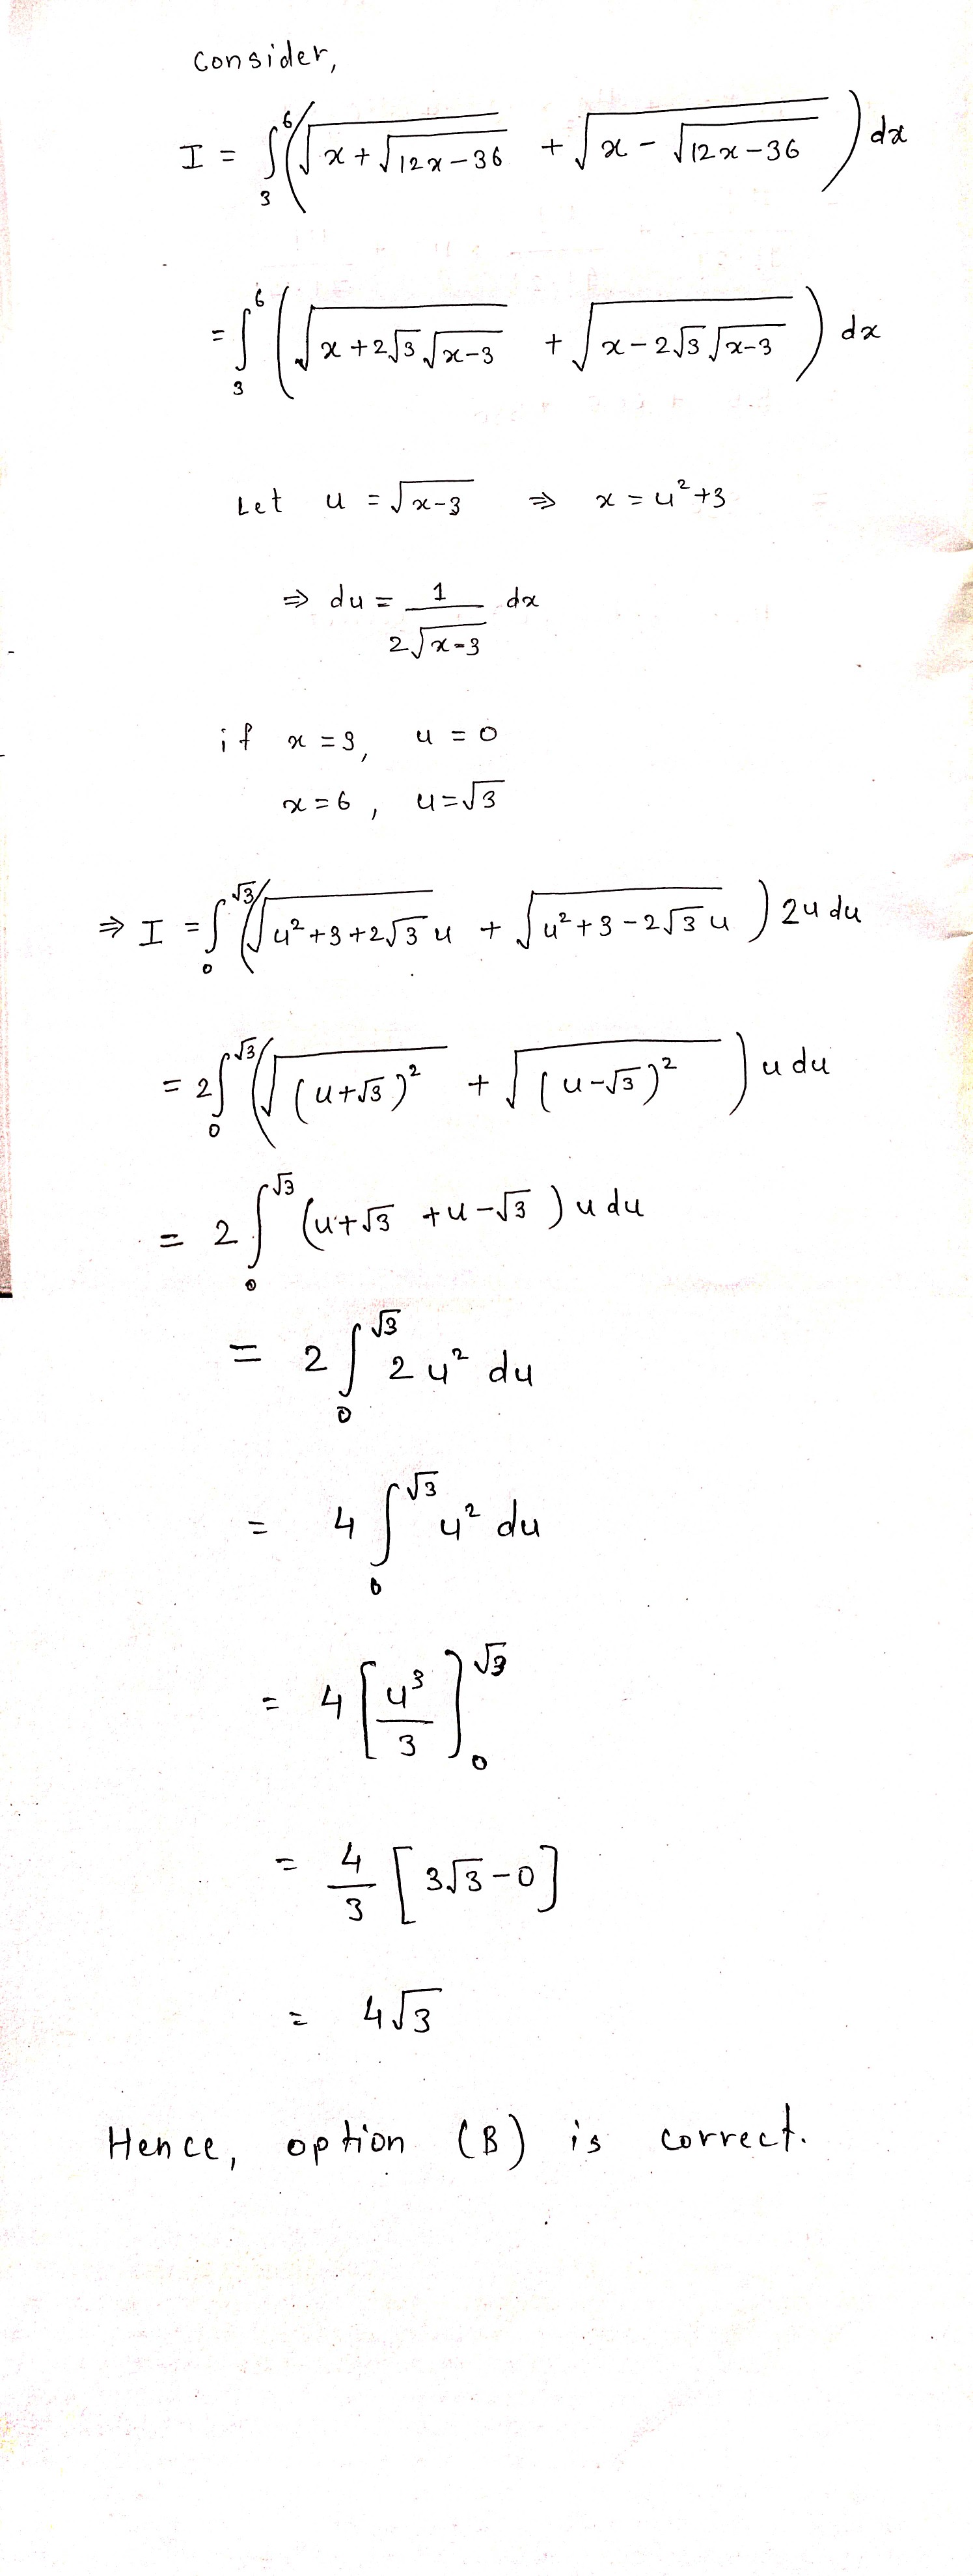 Consider,
I = ∫₃⁶ (√(x + √(12x-36)) + √(x - √(12x-36))) dx
= ∫₃⁶ (√(x + 2√3 √(x-3)) + √(x - 2√3 √(x-3))) dx
Let u = √(x-3) ⇒ x = u² + 3
⇒ du = 1/(2√(x-3)) dx
if x = 3, u = 0
x = 6, u = √3
⇒ I = ∫₀^√3 (√(u² + 3 + 2√3 u) + √(u² + 3 - 2√3 u)) 2u du
= 2∫₀^√3 (√((u+√3)²) + √((u-√3)²)) u du
= 2∫₀^√3 (u+√3 + u-√3) u du
= 2∫₀^√3 2u² du
= 4∫₀^√3 u² du
= 4[u³/3]₀^√3
= 4/3 [3√3 - 0]
= 4√3
Hence, option (B) is correct.